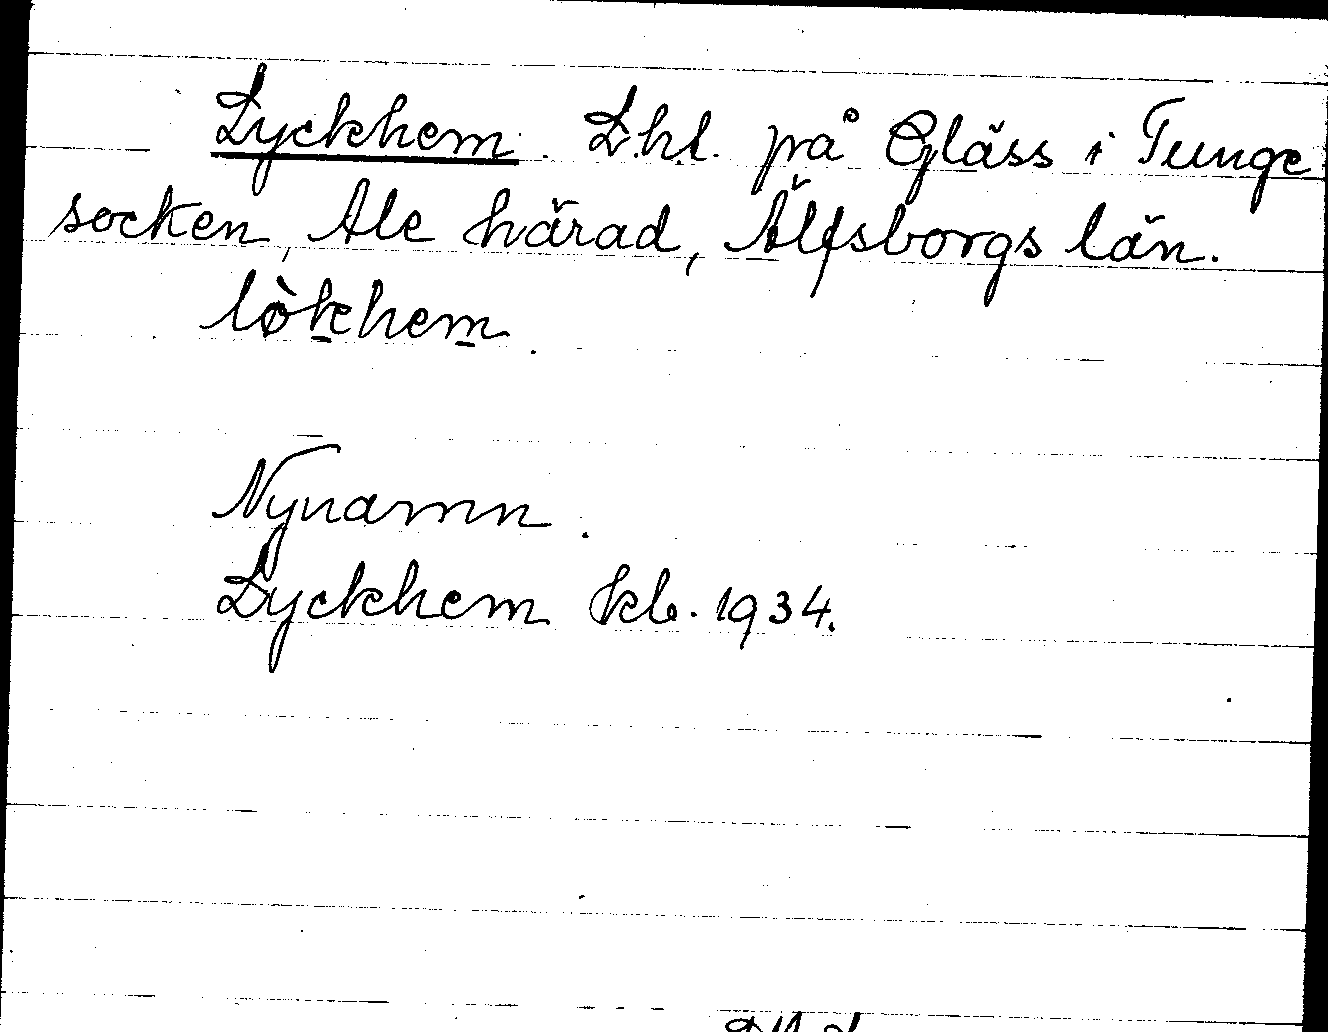 Lyckhem. Lht. på Gläss i Tunge
socken, Ale härad, Älfsborgs län.
lòkhem.
Nynamn.
Lyckhem kb. 1934.